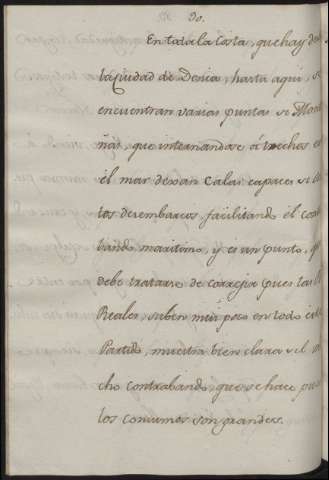 30.
En toda la Costa, que hay de
la Ciudad de Denia, hasta aqui, se
encuentran varias puntas de Mon
ñas, que internandose á trechos en
el mar dexan Calas capaces de
tos desembarcos, facilitando el con
bando maritimo, y es un punto, q
debe tratarse de corregir pues las
Reales, suben muy poco en todo es
Partido, muestra bien clara del m
cho contrabando, que se hace pues
los consumos son grandes.